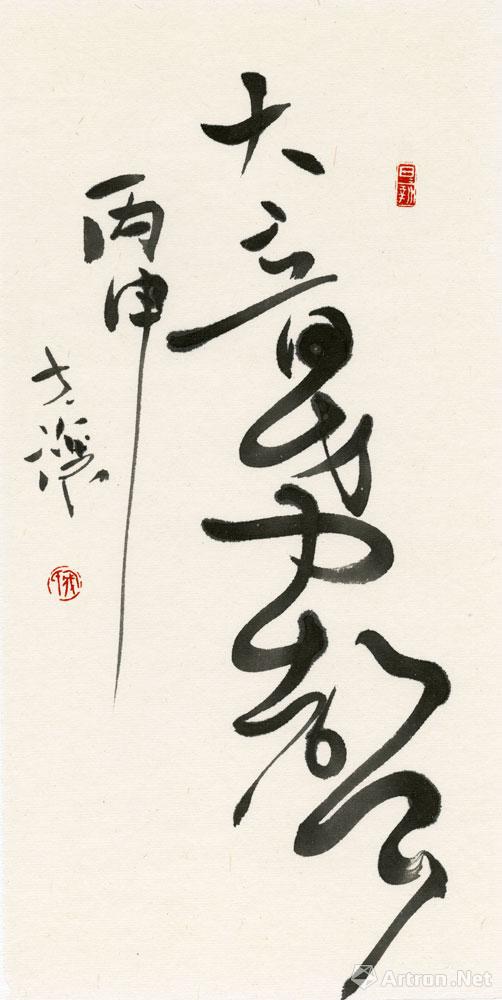 大音希聲
丙申
Artron.Net